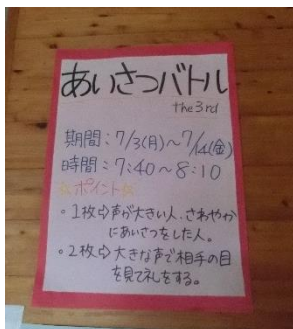 あいさつバトル
the 3rd
期間:7/3(月)〜7/14(金)
時間:7:40〜8:10
☆ポイント☆
・1枚⇨声が大きい人、さわやか
にあいさつをした人。
・2枚⇨大きな声で相手の目
を見て礼をする。